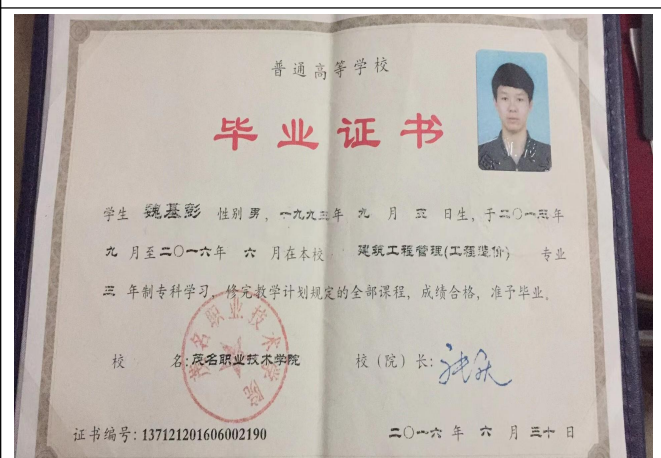 普通高等学校
毕业证书
学生 魏基彭 性别 男，一九九三年 九 月 五 日生，于二〇一三年
九 月至二〇一六年 六 月在本校 建筑工程管理(工程造价) 专业
三 年制专科学习，修完教学计划规定的全部课程，成绩合格，准予毕业。
校 名:茂名职业技术学院 校（院）长:
茂名职业技术学院
证书编号:137121201606002190 二〇一六 年 六 月 三十 日